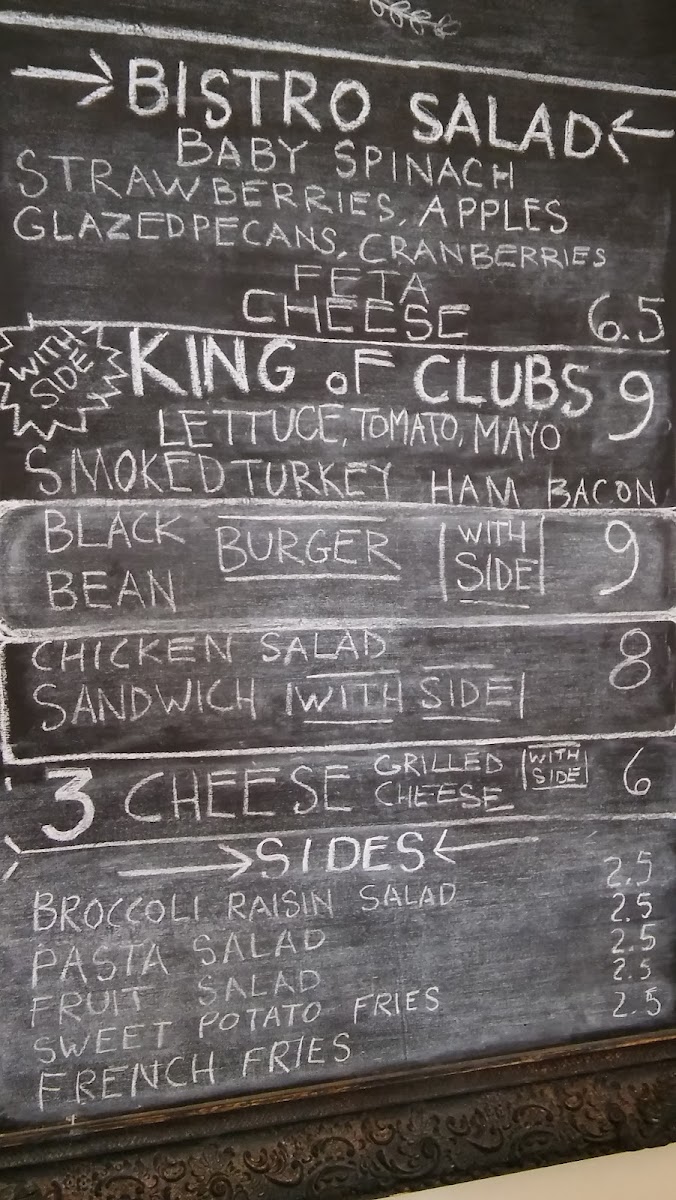 BISTRO SALAD
BABY SPINACH
STRAWBERRIES, APPLES
GLAZED PECANS, CRANBERRIES
FETA
CHEESE 6.5
WITH
SIDE
KING OF CLUBS 9
LETTUCE, TOMATO, MAYO
SMOKED TURKEY HAM BACON
BLACK BURGER WITH 9
BEAN SIDE
CHICKEN SALAD 8
SANDWICH WITH SIDE
3 CHEESE GRILLED WITH 6
CHEESE SIDE
SIDES
BROCCOLI RAISIN SALAD 2.5
PASTA SALAD 2.5
FRUIT SALAD 2.5
SWEET POTATO FRIES 2.5
FRENCH FRIES 2.5